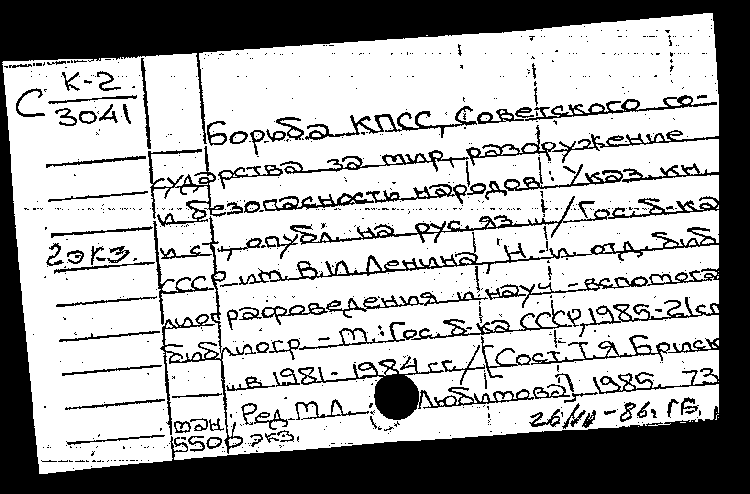 С К-2
3041
2 экз.
Борьба КПСС, Советского го-
сударства за мир, разоружение
и безопасность народов: Указ. кн.
и ст., опубл. на рус. яз ... / Гос. б-ка
СССР им. В.И.Ленина, Н.-и. отд. биб
лиографоведения и науч-вспомога
библиогр - М.: Гос. б-ка СССР, 1985-21см
... в 1981-1984 гг. / [Сост. Т.Я. Бриск
Ред М.Л. Любимова] 1985. 73
5500 экз.
86. ГБ.